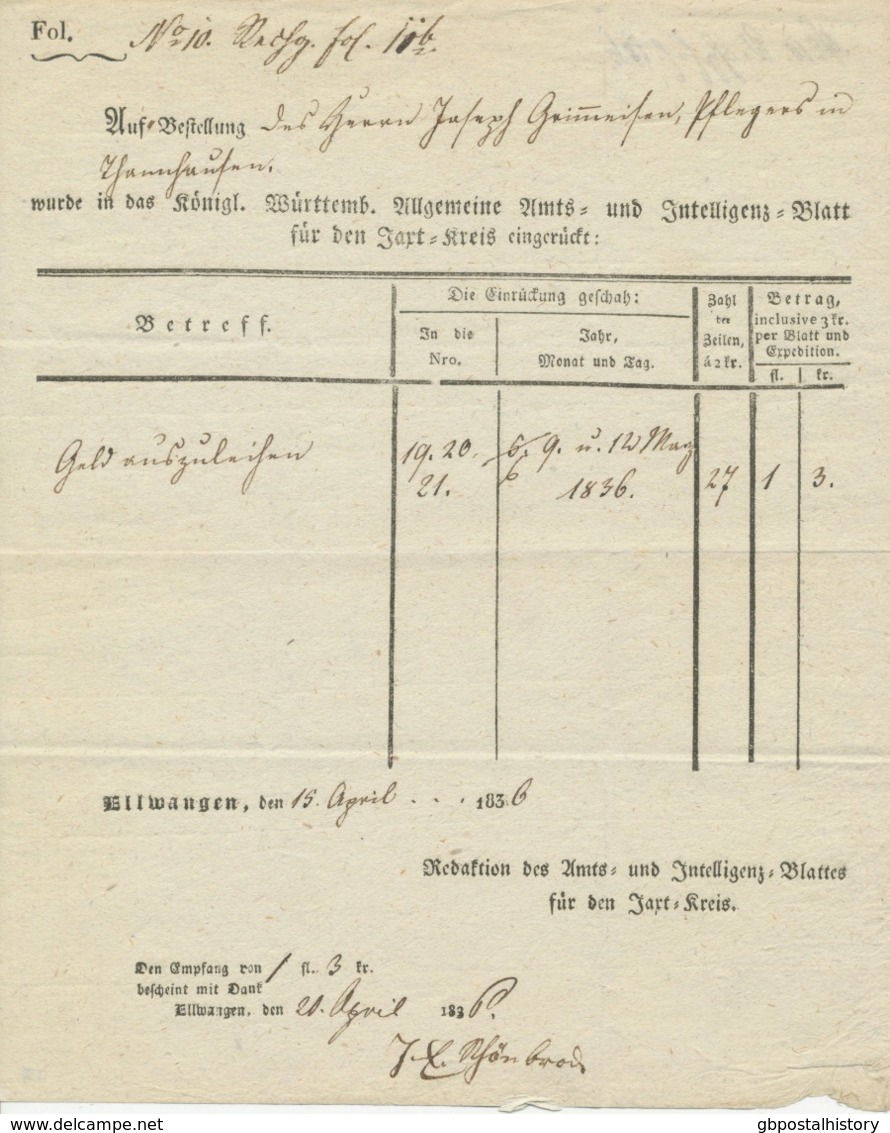 Fol. No 10. Rechg. fol. 11b.
Auf Bestellung des Herrn Joseph Grim̄eisen, Pflegers in
Thannhausen.
wurde in das Königl. Württemb. Allgemeine Amts= und Intelligenz=Blatt
für den Jaxt=Kreis eingerückt:
Betreff.
Die Einrückung geschah:
In die
Nro.
Jahr,
Monat und Tag.
Zahl
der
Zeilen,
à 2 kr.
Betrag,
inclusive 3 kr.
per Blatt und
Expedition.
fl. kr.
Geld auszuleihen
19. 20. 9. u. 12 März
21. 6 1836. 27 1 3.
Ellwangen, den 15. April . . . 1836
Redaktion des Amts= und Intelligenz=Blattes
für den Jaxt=Kreis.
Den Empfang von 1 fl. 3 kr.
bescheint mit Dank
Ellwangen, den 20. April 1836.
Schönbrod
www.delcampe.net
gbpostalhistory